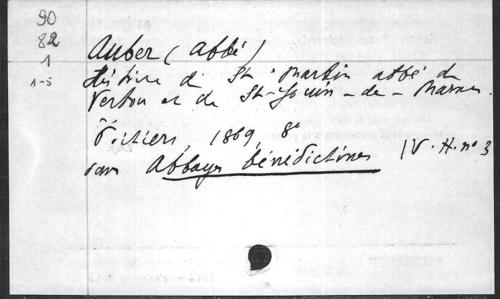 90
82
1
1-5
Auber (abbé)
Histoire de St Martin abbé de
Vertou et de St-Jouin-de-Marnes
Poitiers, 1869, 8°
dans Abbayes bénédictines IV. H. no 3